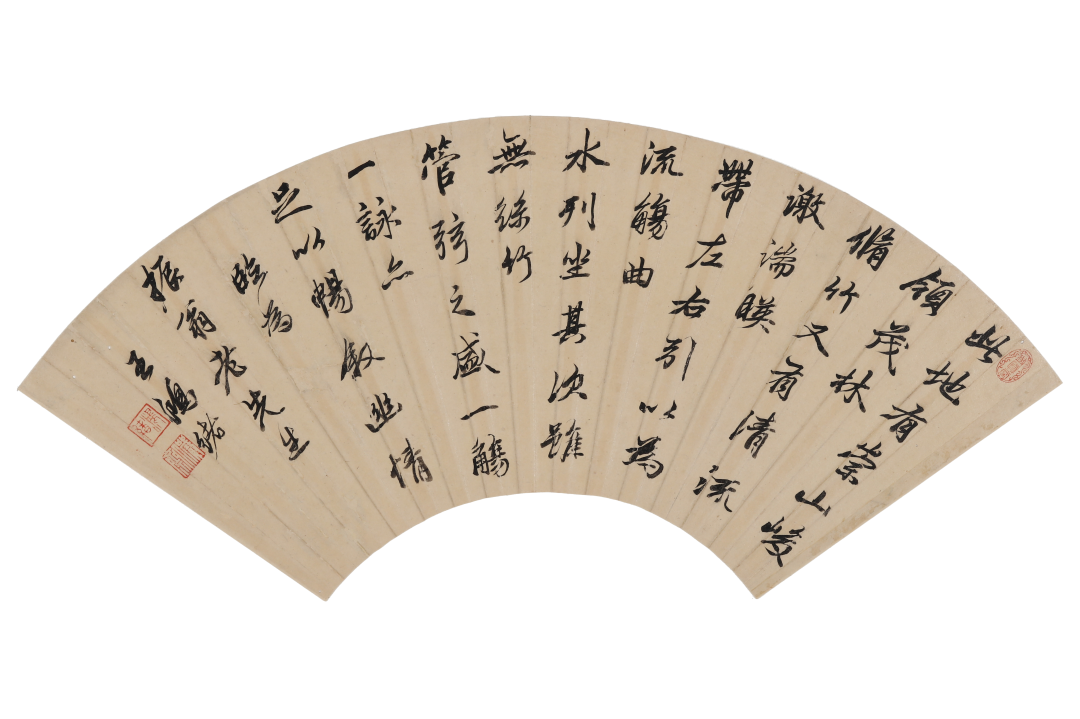 此地有崇山峻
領茂林
脩竹又有清流
激湍暎
帶左右引以為
流觴曲
水列坐其次雖
無絲竹
管弦之盛一觴
一詠亦
足以暢敘幽情
臨為
振翁老先生
王鴻緒